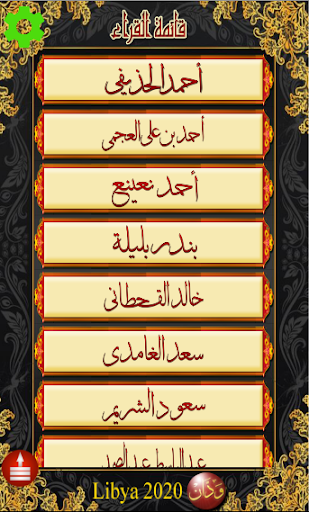 قائمة القراء
أحمد الحذيفي
أحمد بن علي العجمي
أحمد نعينع
بندر بليلة
خالد القحطاني
سعد الغامدي
سعود الشريم
عبد الباسط عبد الصمد
Libya 2020 ودان